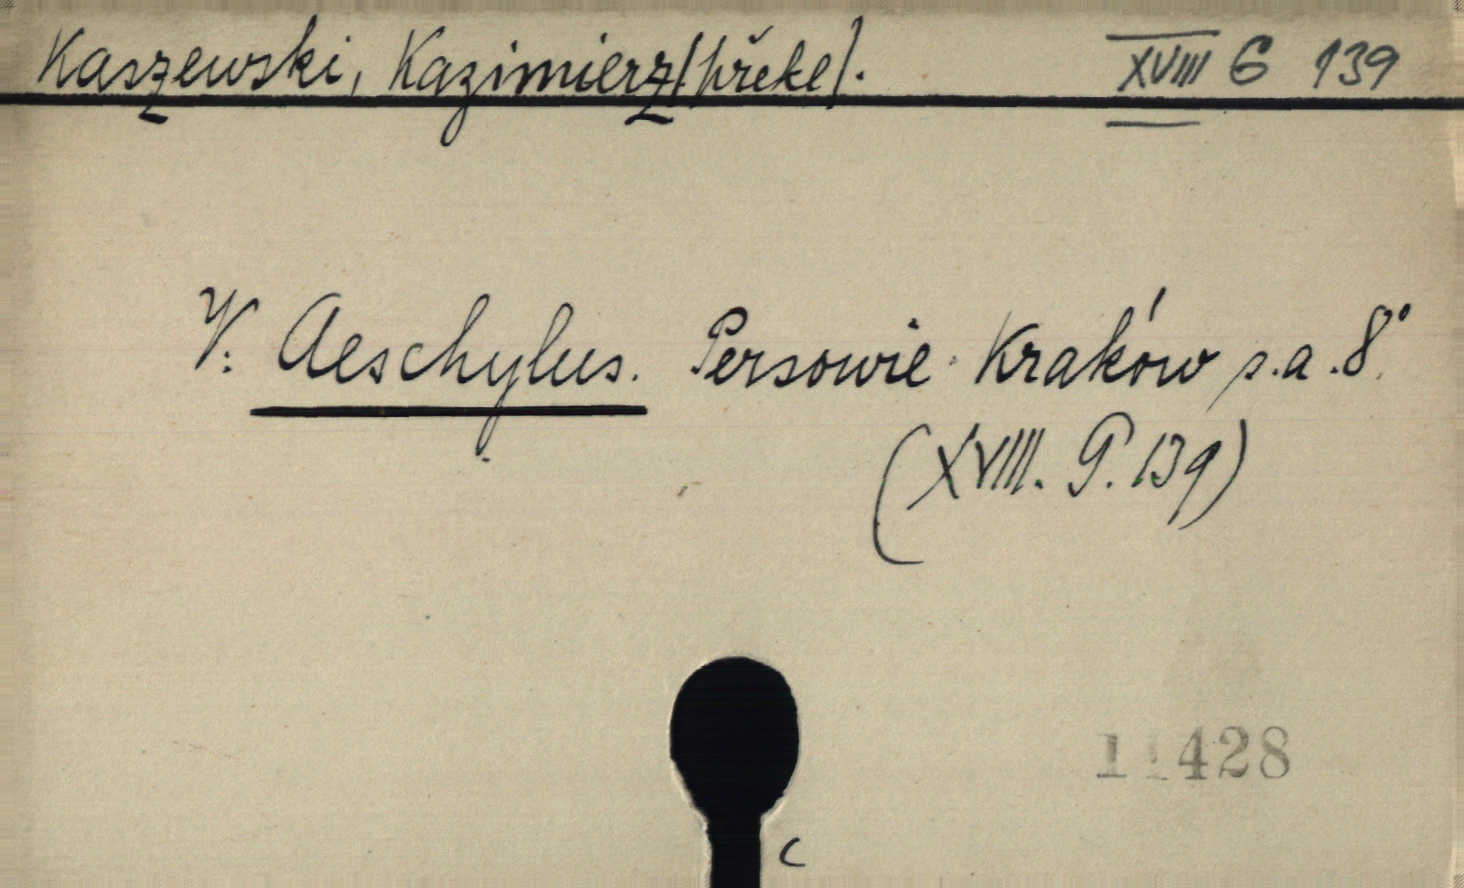 Kaszewski, Kazimierz/překl/.
XVIII G 139
V: Aeschylus. Persowie. Kraków s.a. 8°.
(XVIII. G. 139)
11428
C